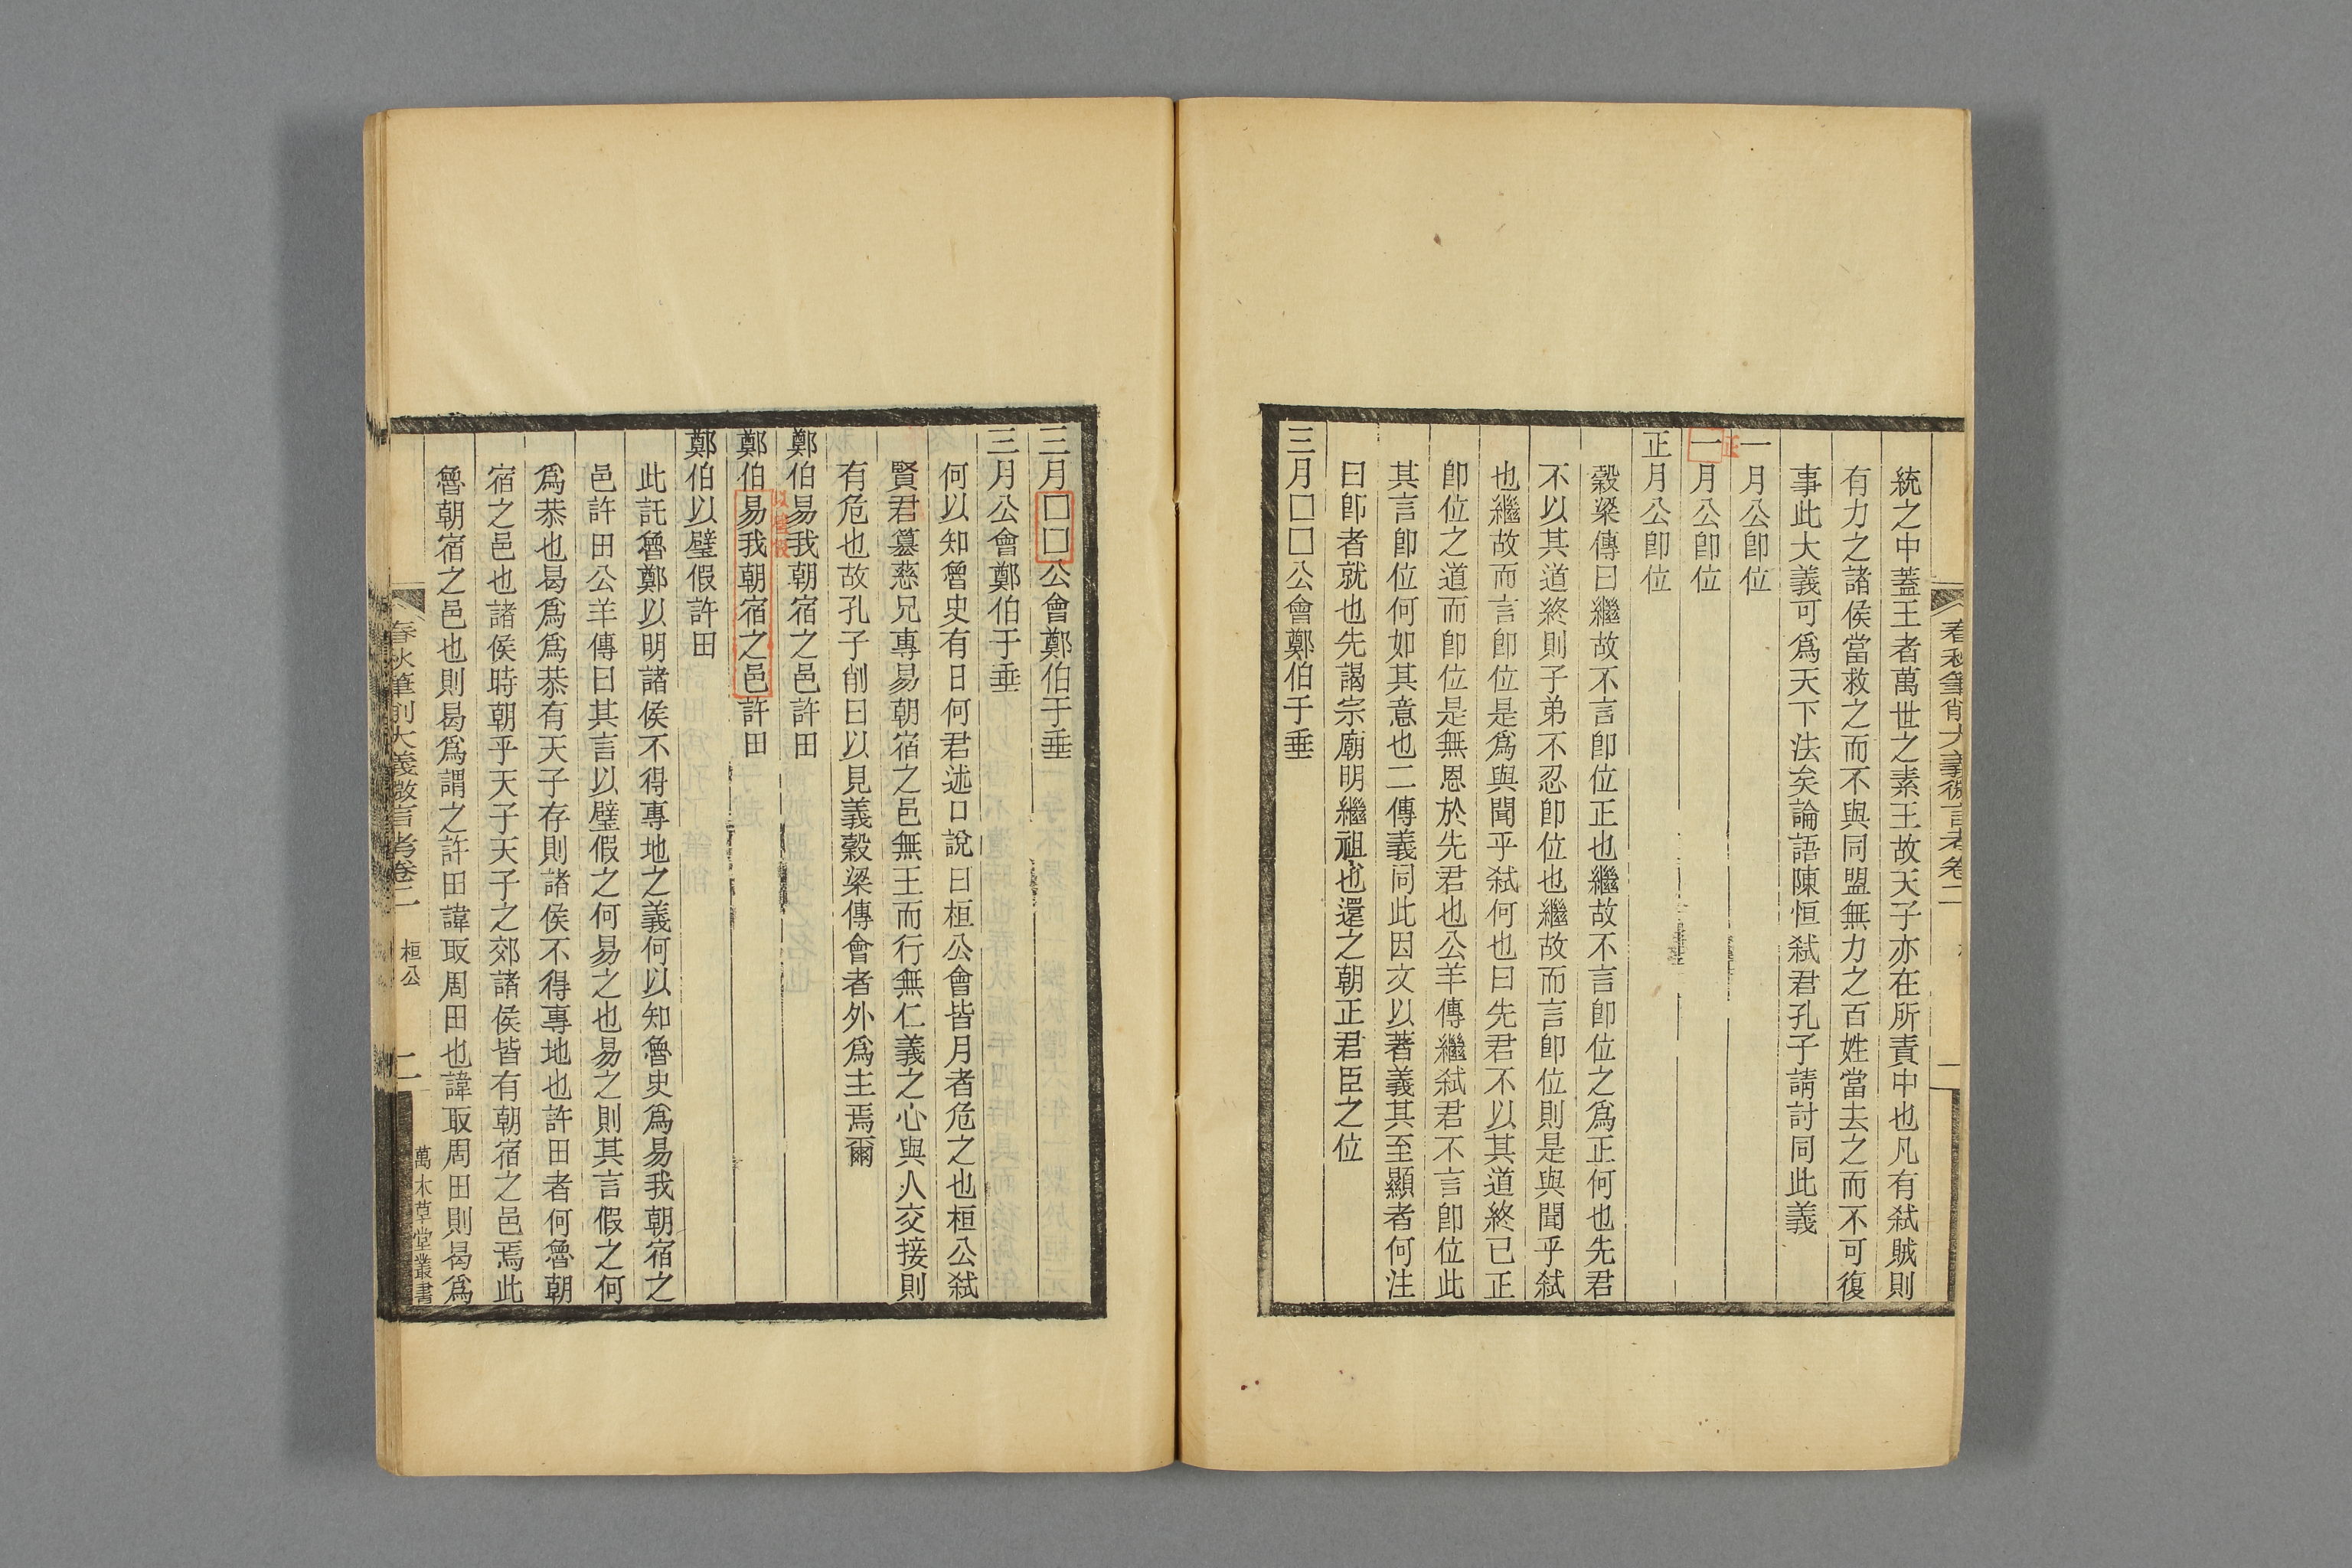 統之中蓋王者萬世之素王故天子亦在所責中也凡有弑賊則
有力之諸侯當救之而不與同盟無力之百姓當去之而不可復
事此大義可爲天下法矣論語陳恒弑君孔子請討同此義
一月公卽位
正
一月公卽位
正月公卽位
穀梁傳曰繼故不言卽位正也繼故不言卽位之爲正何也先君
不以其道終則子弟不忍卽位也繼故而言卽位則是與聞乎弑
也繼故而言卽位是爲與聞乎弑何也曰先君不以其道終已正
卽位之道而卽位是無恩於先君也公羊傳繼弑君不言卽位此
其言卽位何如其意也二傳義同此因文以著義其至顯者何注
曰卽者就也先謁宗廟明繼祖也還之朝正君臣之位
三月□□公會鄭伯于垂
春秋筆削大義微言考卷二
一
三月□□公會鄭伯于垂
三月公會鄭伯于垂
何以知魯史有日何君述口說曰桓公會皆月者危之也桓公弑
賢君簒慈兄專易朝宿之邑無王而行無仁義之心與人交接則
有危也故孔子削日以見義穀梁傳會者外爲主焉爾
鄭伯易我朝宿之邑許田
以璧假
鄭伯易我朝宿之邑許田
鄭伯以璧假許田
此託魯鄭以明諸侯不得專地之義何以知魯史爲易我朝宿之
邑許田公羊傳曰其言以璧假之何易之也易之則其言假之何
爲恭也曷爲爲恭有天子存則諸侯不得專地也許田者何魯朝
宿之邑也諸侯時朝乎天子天子之郊諸侯皆有朝宿之邑焉此
魯朝宿之邑也則曷爲謂之許田諱取周田也諱取周田則曷爲
春秋筆削大義微言考卷二 桓公 二 萬木草堂叢書